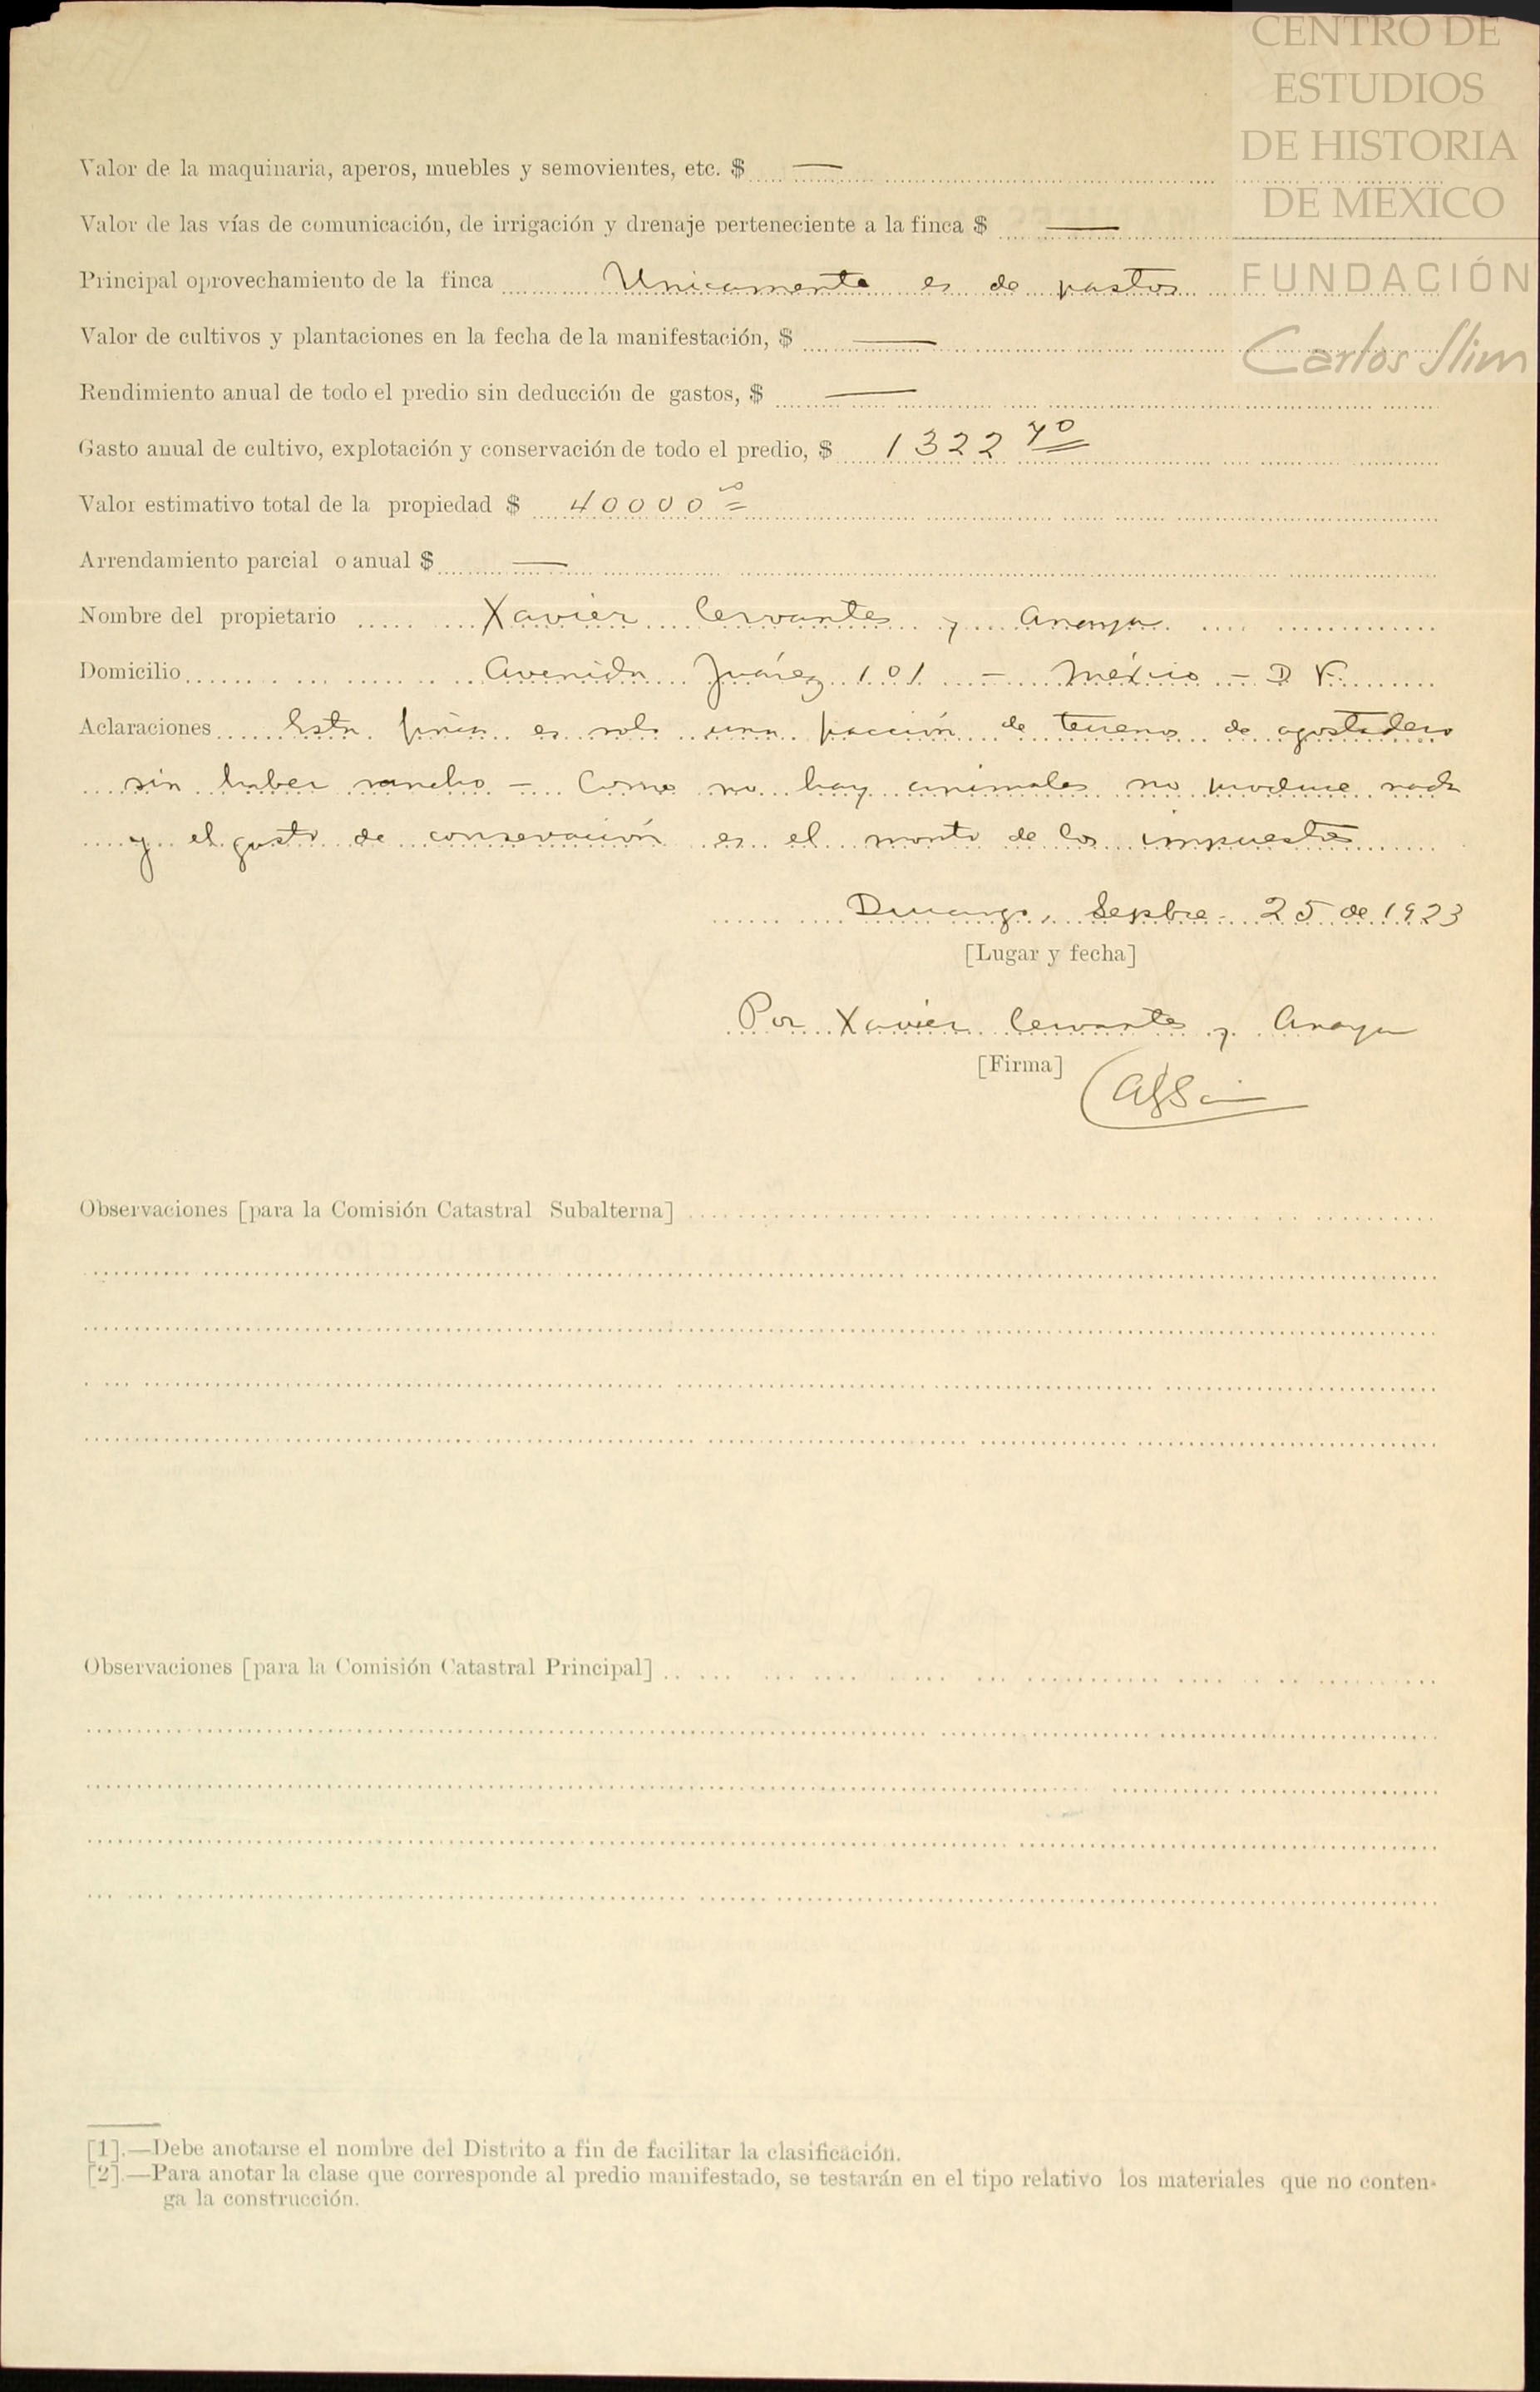 CENTRO DE
ESTUDIOS
DE HISTORIA
DE MÉXICO
FUNDACIÓN
Carlos Slim
Valor de la maquinaria, aperos, muebles y semovientes, etc. $ —
Valor de las vías de comunicación, de irrigación y drenaje perteneciente a la finca $ —
Principal oprovechamiento de la finca Unicamente es de pastos
Valor de cultivos y plantaciones en la fecha de la manifestación, $ —
Rendimiento anual de todo el predio sin deducción de gastos, $ —
Gasto anual de cultivo, explotación y conservación de todo el predio, $ 1322 40
Valor estimativo total de la propiedad $ 40000 00
Arrendamiento parcial o anual $ —
Nombre del propietario Xavier Cervantes y Anaya
Domicilio Avenida Juárez 101 — México — D F.
Aclaraciones Esta finca es solo una fracción de terreno de agostadero
sin haber rancho — Como no hay animales no produce nada
y el gasto de conservación es el monto de los impuestos
Durango, Sepbre. 25 de 1923
[Lugar y fecha]
Por Xavier Cervantes y Anaya
[Firma]
Observaciones [para la Comisión Catastral Subalterna]
Observaciones [para la Comisión Catastral Principal]
[1].—Debe anotarse el nombre del Distrito a fin de facilitar la clasificación.
[2].—Para anotar la clase que corresponde al predio manifestado, se testarán en el tipo relativo los materiales que no conten-
ga la construcción.